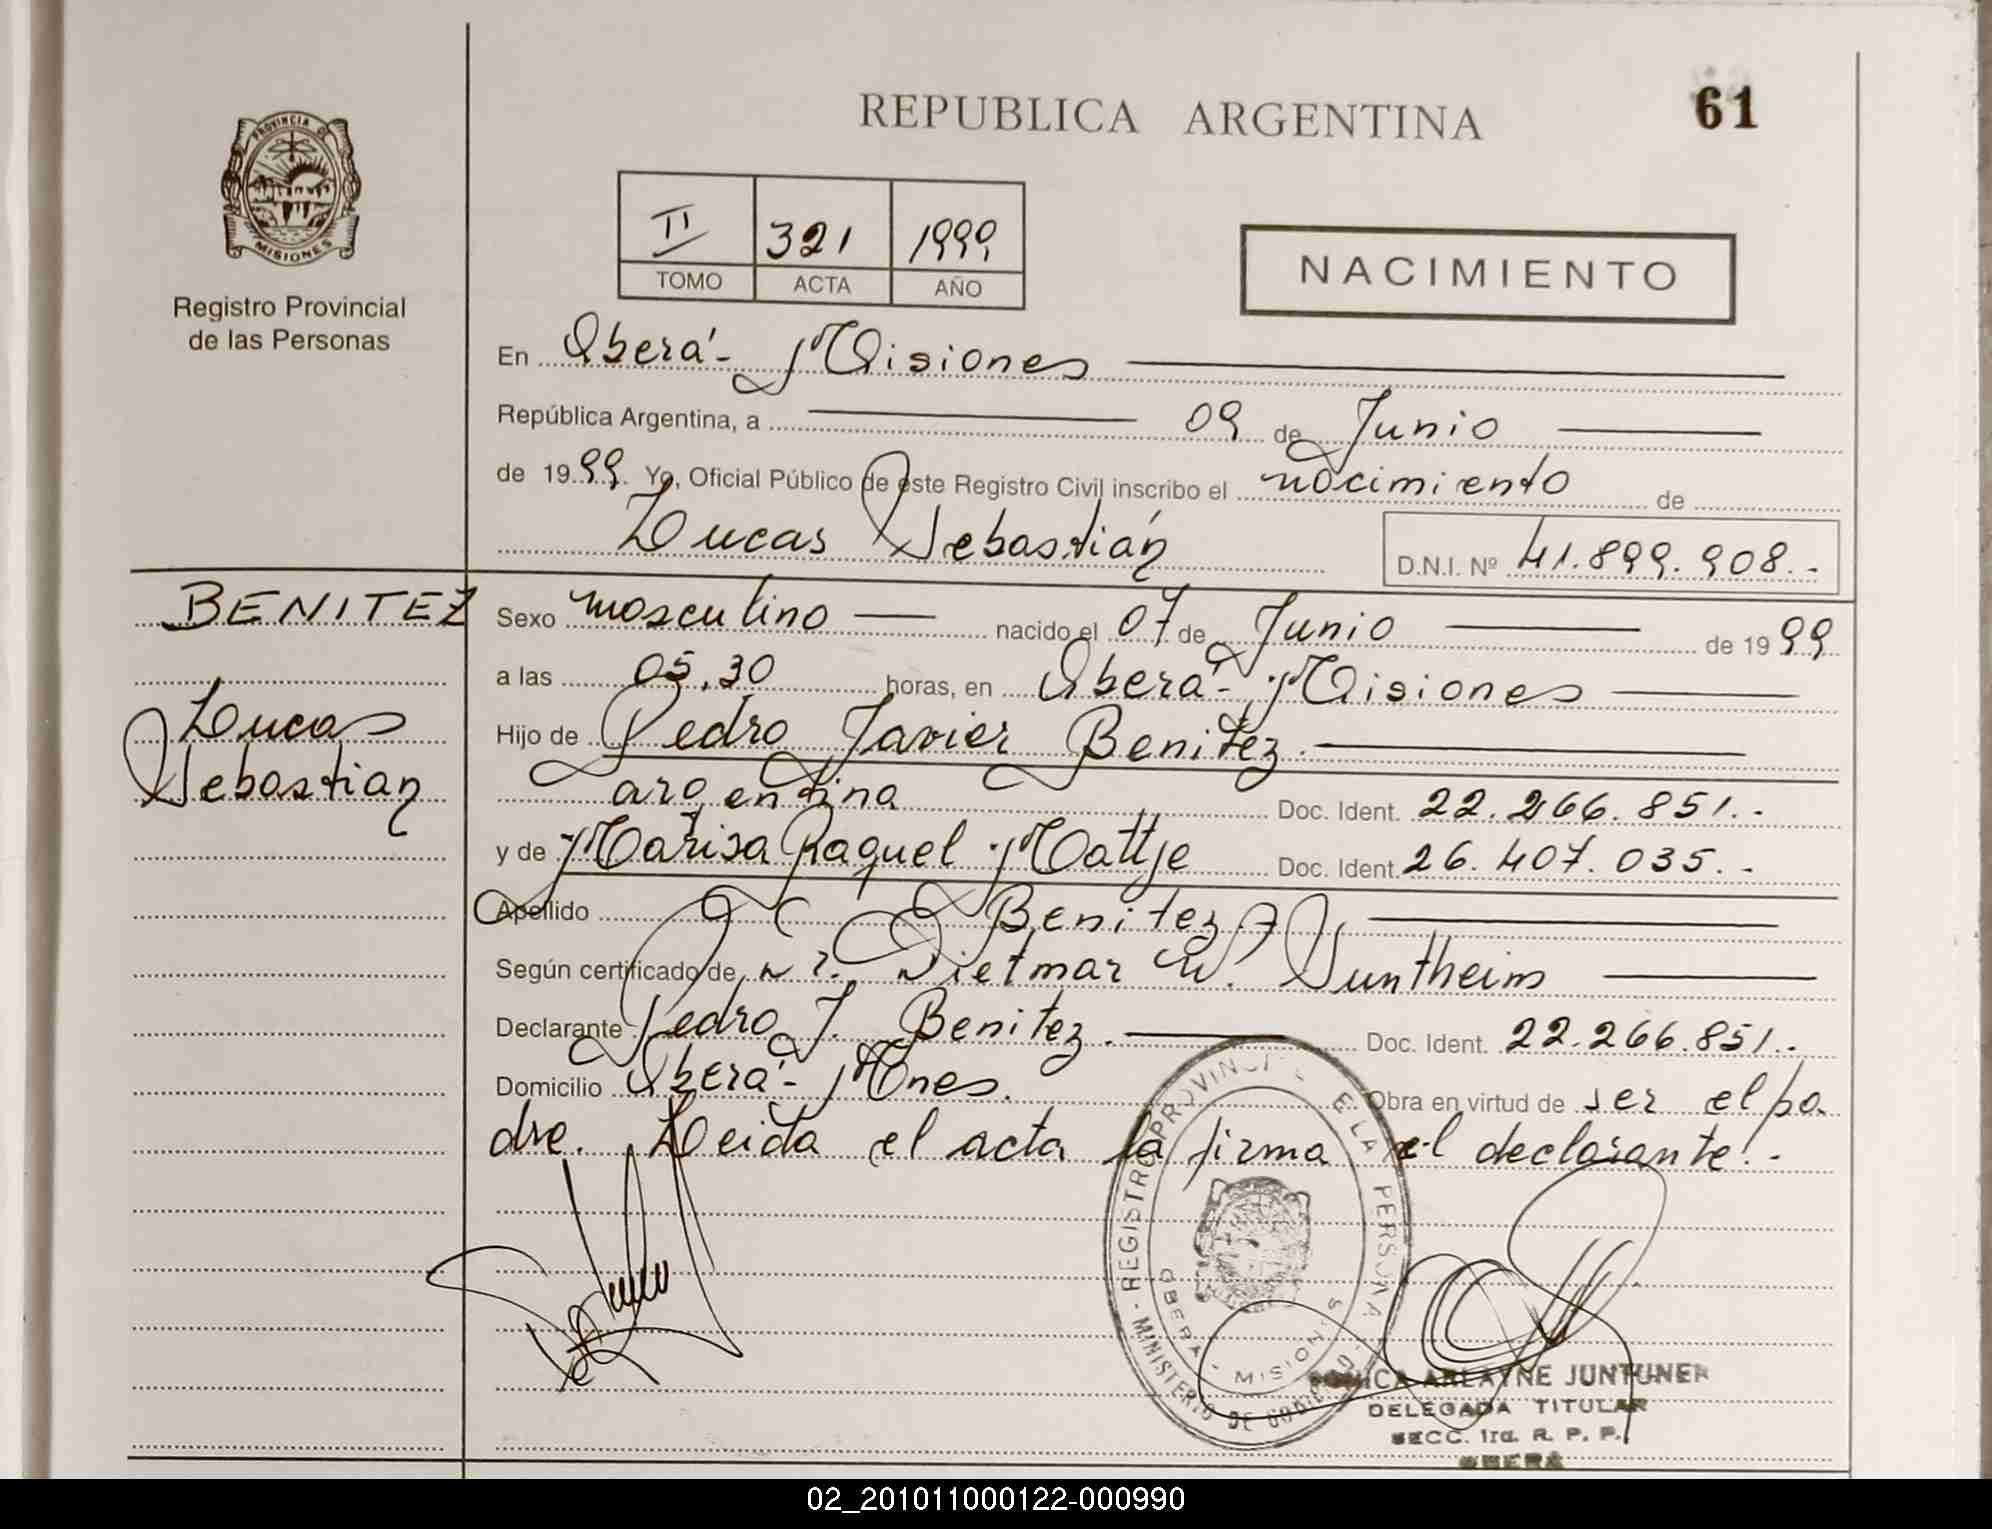 REPUBLICA ARGENTINA
61
PROVINCIA DE
MISIONES
Registro Provincial
de las Personas
II 321 1999
TOMO ACTA AÑO
NACIMIENTO
En Oberá - Misiones
República Argentina, a 09 de Junio
de 1999 Yo, Oficial Público de este Registro Civil inscribo el nacimiento de
Lucas Sebastián
D.N.I. Nº 41.899.908.-
BENITEZ
Lucas
Sebastian
Sexo masculino nacido el 07 de Junio de 1999
a las 05.30 horas, en Oberá - Misiones
Hijo de Pedro Javier Benitez.
argentina Doc. Ident. 22.266.851.-
y de Marisa Raquel Mattje Doc. Ident. 26.407.035.-
Apellido Benitez
Según certificado de Dr. Dietmar W. Suntheim
Declarante Pedro J. Benitez. Doc. Ident. 22.266.851.-
Domicilio Oberá - Mnes. Obra en virtud de ser el pa
dre. Leida el acta la firma el declarante.-
MINISTERIO DE GOBIERNO - REGISTRO PROVINCIAL DE LA PERSONA
OBERA - MISIONES
ARLAYNE JUNTUNER
DELEGADA TITULAR
SECC. 1ra. R. P. P.
OBERA
02_201011000122-000990